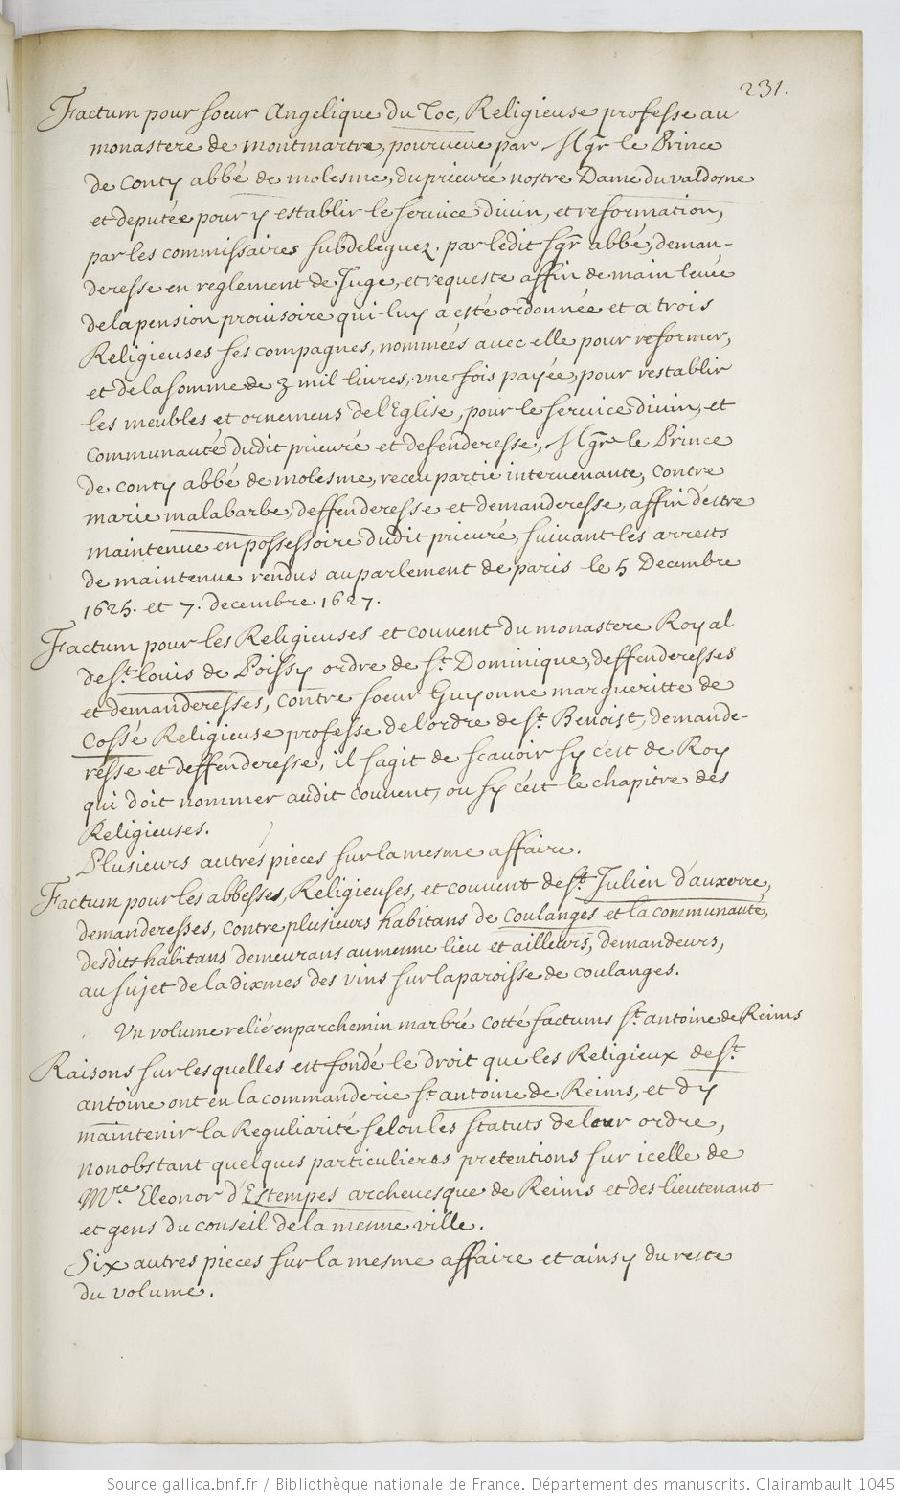 231.
Factum pour soeur Angelique du Toc, Religieuse professe au
monastere de montmartre, pourveue par Mgr le Prince
de Conty abbé de molesme, du prieuré nostre Dame du valdosne
et deputée pour y establir le service divin, et reformation,
par les commissaires subdeleguez, par ledit sgr abbé, deman-
deresse en reglement de Juge, et requeste affin de main levée
de la pension provisoire qui luy a esté ordonnée et a trois
Religieuses ses compagnes, nommées avec elle pour reformer,
et de la somme de 3 mil livres, une fois payée, pour restablir
les meubles et ornemens de l'Eglise, pour le service divin, et
communauté dudit prieuré et defenderesse, Mgr le Prince
de conty abbé de molesme, receu partie intervenante, Contre
marie malabarbe, deffenderesse et demanderesse, affin d'estre
maintenue en possessoire dudit prieuré, suivant les arrests
de maintenue rendus au parlement de paris le 5 Decembre
1625. et 7. decembre. 1627.
Factum pour les Religieuses et couvent du monastere Royal
de St. Louis de Poissy ordre de St. Dominique, deffenderesses
et demanderesses, Contre soeur Guyonne margueritte de
Cossé Religieuse professe de l'ordre de St. Benoist, demande-
resse et deffenderesse, il s'agit de scavoir sy c'est de Roy
qui doit nommer audit couvent, ou sy c'est le chapitre des
Religieuses.
Plusieurs autres pieces sur la mesme affaire.
Factum pour les abbesses, Religieuses, et couvent de St. Julien d'auxerre,
demanderesses, contre plusieurs habitans de Coulanges et la communauté,
desdits habitans demeurans au mesme lieu et ailleurs, demandeurs,
au sujet de la dixmes des vins sur la paroisse de coulanges.
Un volume relié en parchemin marbré cotté factums St. antoine de Reims
Raisons sur lesquelles est fondé le droit que les Religieux de St.
antoine ont en la commanderie St antoine de Reims, et d'y
maintenir la Reguliarité selon les statuts de leur ordre,
nonobstant quelques particulieres pretentions sur icelle de
Mre. Eleonor d'Estempes archevesque de Reims et des lieutenant
et gens du conseil de la mesme ville.
Six autres pieces sur la mesme affaire et ainsy du reste
du volume.
Source gallica.bnf.fr / Bibliothèque nationale de France. Département des manuscrits. Clairambault 1045